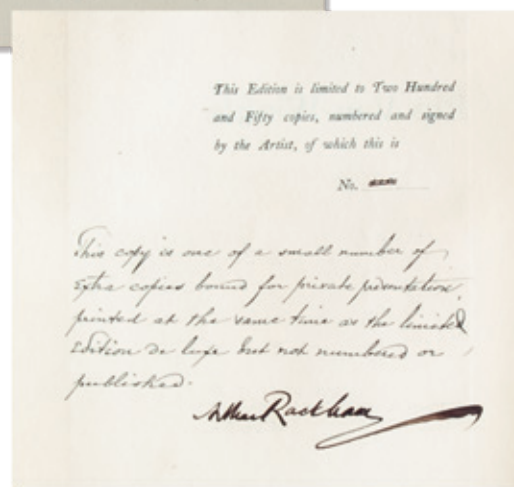 This Edition is limited to Two Hundred
and Fifty copies, numbered and signed
by the Artist, of which this is
No.
This copy is one of a small number of
Extra copies bound for private presentation,
printed at the same time as the limited
Edition De luxe but not numbered or
published.
Arthur Rackham